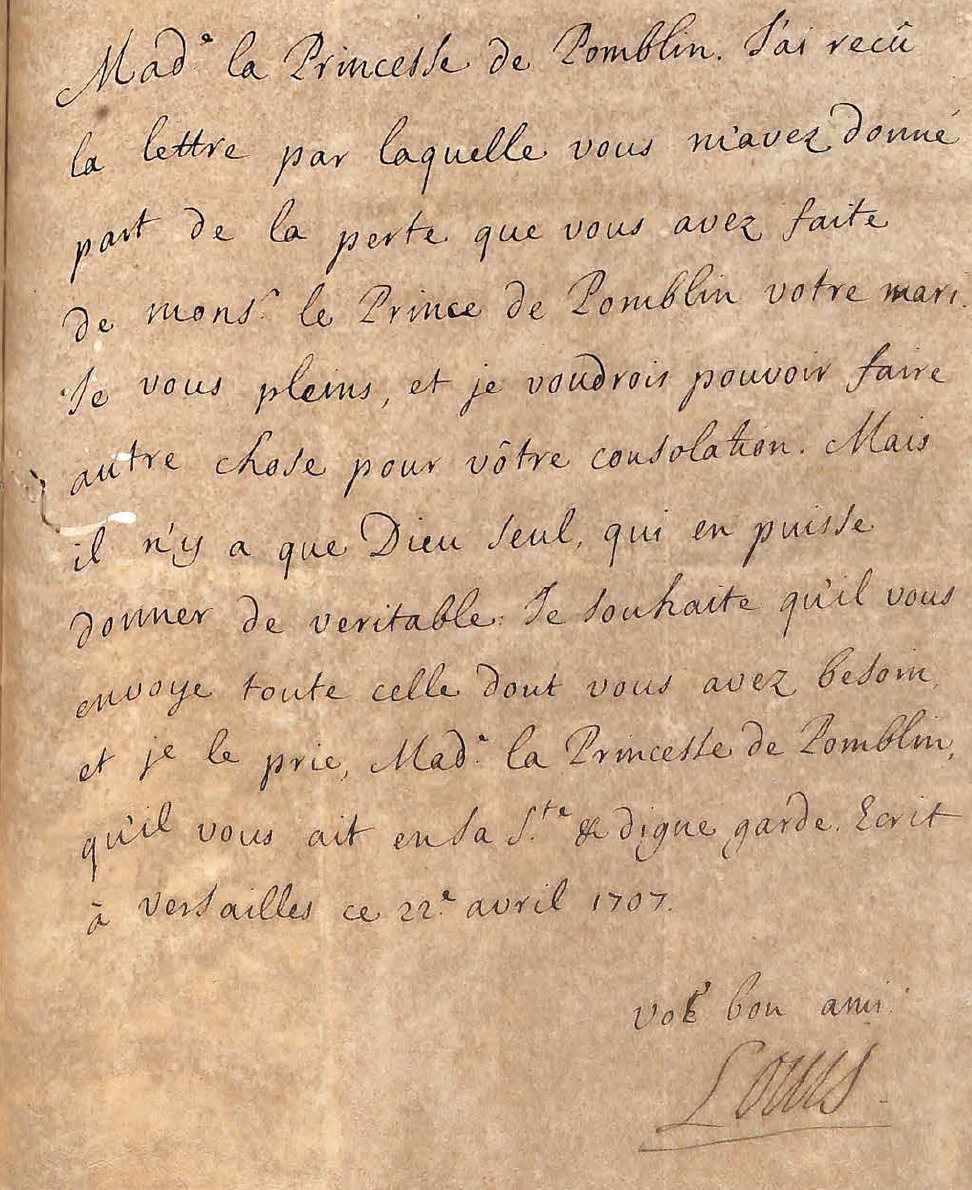 Mad.e la Princesse de Pomblin. J'ai recû
la lettre par laquelle vous m'avez donné
part de la perte que vous avez faite
de mons.r le Prince de Pomblin votre mari.
Je vous pleins, et je voudrois pouvoir faire
autre chose pour vôtre consolation. Mais
il n'y a que Dieu seul, qui en puisse
donner de veritable. Je souhaite qu'il vous
envoye toute celle dont vous avez besoin,
et je le prie, Mad.e la Princesse de Pomblin,
qu'il vous ait en sa S.te & digne garde. Ecrit
à Versailles ce 22.e avril 1707.
bon ami.
Louis